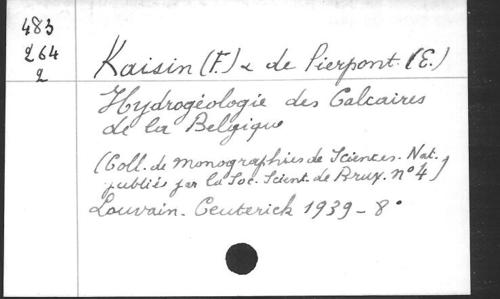 483
264
2
Kaisin (F.) & de Pierpont (E.)
Hydrogéologie des Calcaires
de la Belgique
(Coll. de monographies de Sciences. Nat.
publiés par la Soc. Scient. de Brux. n° 4)
Louvain. Ceuterick 1939 - 8°